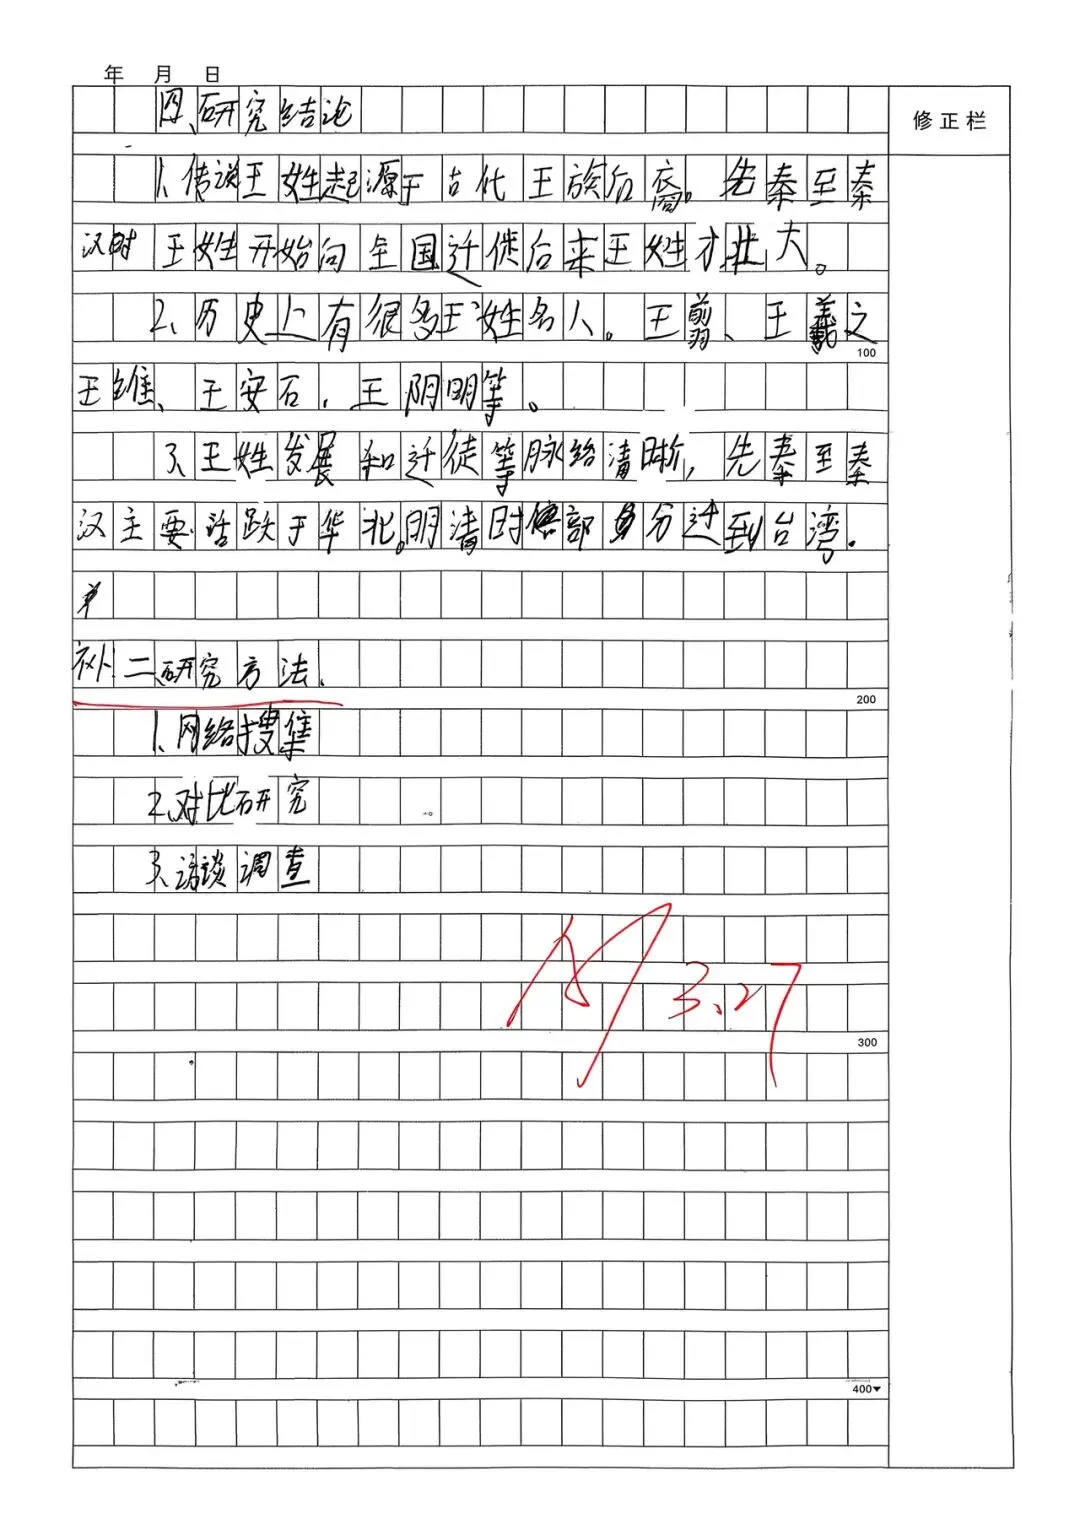 年 月 日
修正栏
四、研究结论
1、传说王姓起源于古代王族后裔。先秦至秦
汉时王姓开始向全国迁徙后来王姓才壮大。
2、历史上有很多王姓名人。王翦、王羲之
100
王维、王安石，王阴明等。
3、王姓发展和迁徒等脉络清晰，先秦至秦
汉主要活跃于华北。明清时部分迁到台湾.
补二研究方法.
200
1、网络搜集
2、对比研究
3、访谈调查
3.27
300
400